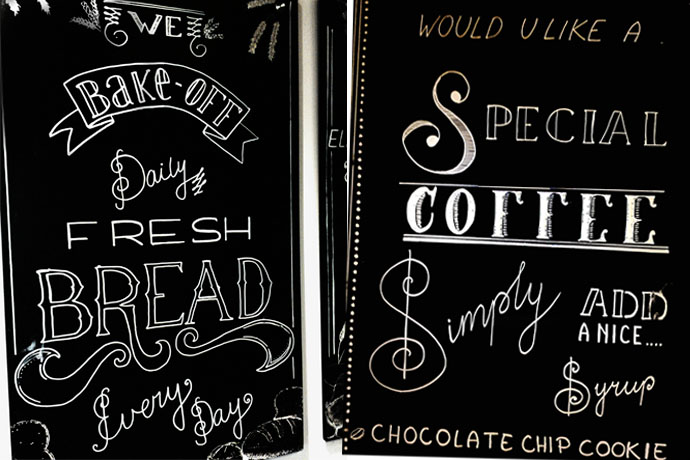 WE
Bake-OFF
Daily
FRESH
BREAD
Every Day
EL
WOULD U LIKE A
SPECIAL
COFFEE
Simply ADD
A NICE....
Syrup
CHOCOLATE CHIP COOKIE